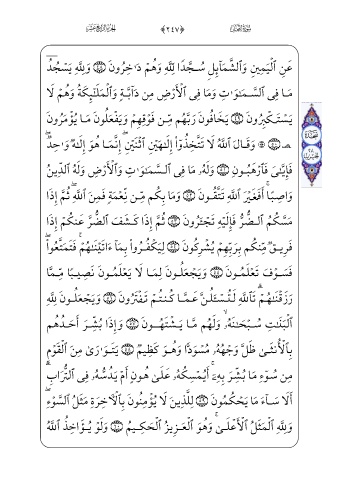 سورة النحل ﴿٢٤٧﴾ الجزء الرابع عشر
عَنِ الْيَمِينِ وَالشَّمَآئِلِ سُجَّدًا لِّلَّهِ وَهُمْ دَاخِرُونَ ﴿٤٨﴾ وَلِلَّهِ يَسْجُدُ
مَا فِى السَّمَاوَاتِ وَمَا فِى الْأَرْضِ مِن دَآبَّةٍ وَالْمَلَائِكَةُ وَهُمْ لَا
يَسْتَكْبِرُونَ ﴿٤٩﴾ يَخَافُونَ رَبَّهُم مِّن فَوْقِهِمْ وَيَفْعَلُونَ مَا يُؤْمَرُونَ
﴿٥٠﴾ ۞ وَقَالَ اللَّهُ لَا تَتَّخِذُوٓا۟ إِلَٰهَيْنِ اثْنَيْنِ ۖ إِنَّمَا هُوَ إِلَٰهٌ وَاحِدٌ ۖ
فَإِيَّاىَ فَارْهَبُونِ ﴿٥١﴾ وَلَهُ مَا فِى السَّمَاوَاتِ وَالْأَرْضِ وَلَهُ الدِّينُ
وَاصِبًا ۚ أَفَغَيْرَ اللَّهِ تَتَّقُونَ ﴿٥٢﴾ وَمَا بِكُم مِّن نِّعْمَةٍ فَمِنَ اللَّهِ ۖ ثُمَّ إِذَا
مَسَّكُمُ الضُّرُّ فَإِلَيْهِ تَجْـَٔرُونَ ﴿٥٣﴾ ثُمَّ إِذَا كَشَفَ الضُّرَّ عَنكُمْ إِذَا
فَرِيقٌ مِّنكُم بِرَبِّهِمْ يُشْرِكُونَ ﴿٥٤﴾ لِيَكْفُرُوا۟ بِمَآ ءَاتَيْنَاهُمْ ۚ فَتَمَتَّعُوا۟ ۖ
فَسَوْفَ تَعْلَمُونَ ﴿٥٥﴾ وَيَجْعَلُونَ لِمَا لَا يَعْلَمُونَ نَصِيبًا مِّمَّا
رَزَقْنَاهُمْ ۗ تَاللَّهِ لَتُسْـَٔلُنَّ عَمَّا كُنتُمْ تَفْتَرُونَ ﴿٥٦﴾ وَيَجْعَلُونَ لِلَّهِ
الْبَنَاتِ سُبْحَانَهُ ۙ وَلَهُم مَّا يَشْتَهُونَ ﴿٥٧﴾ وَإِذَا بُشِّرَ أَحَدُهُم
بِالْأُنثَىٰ ظَلَّ وَجْهُهُ مُسْوَدًّا وَهُوَ كَظِيمٌ ﴿٥٨﴾ يَتَوَارَىٰ مِنَ الْقَوْمِ
مِن سُوٓءِ مَا بُشِّرَ بِهِ ۚ أَيُمْسِكُهُ عَلَىٰ هُونٍ أَمْ يَدُسُّهُ فِى التُّرَابِ ۗ
أَلَا سَآءَ مَا يَحْكُمُونَ ﴿٥٩﴾ لِلَّذِينَ لَا يُؤْمِنُونَ بِالْآخِرَةِ مَثَلُ السَّوْءِ ۖ
وَلِلَّهِ الْمَثَلُ الْأَعْلَىٰ ۚ وَهُوَ الْعَزِيزُ الْحَكِيمُ ﴿٦٠﴾ وَلَوْ يُؤَاخِذُ اللَّهُ